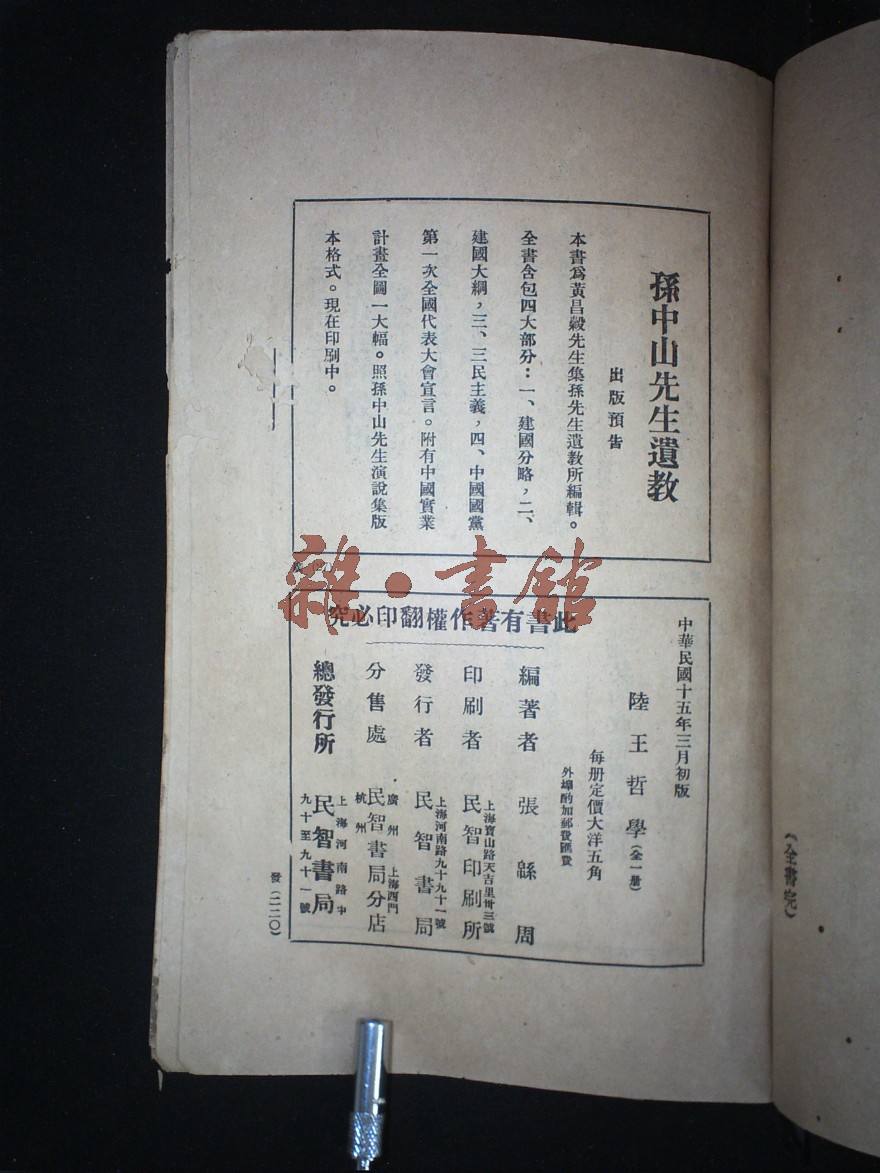 孫中山先生遺教
出版預告
本書爲黃昌穀先生集孫先生遺教所編輯。
全書含包四大部分：一、建國分略，二、
建國大綱，三、三民主義，四、中國國黨
第一次全國代表大會宣言。附有中國實業
計畫全圖一大幅。照孫中山先生演說集版
本格式。現在印刷中。
中華民國十五年三月初版
陸王哲學（全一册）
每册定價大洋五角
外埠酌加郵費匯費
此書有著作權翻印必究
編著者 張緜周
印刷者 上海寶山路天吉里卅三號 民智印刷所
發行者 上海河南路九十九十一號 民智書局
分售處 廣州 上海西門 杭州 民智書局分店
總發行所 上海河南路中 九十至九十一號 民智書局
發（二二〇）
（全書完）
雜·書館